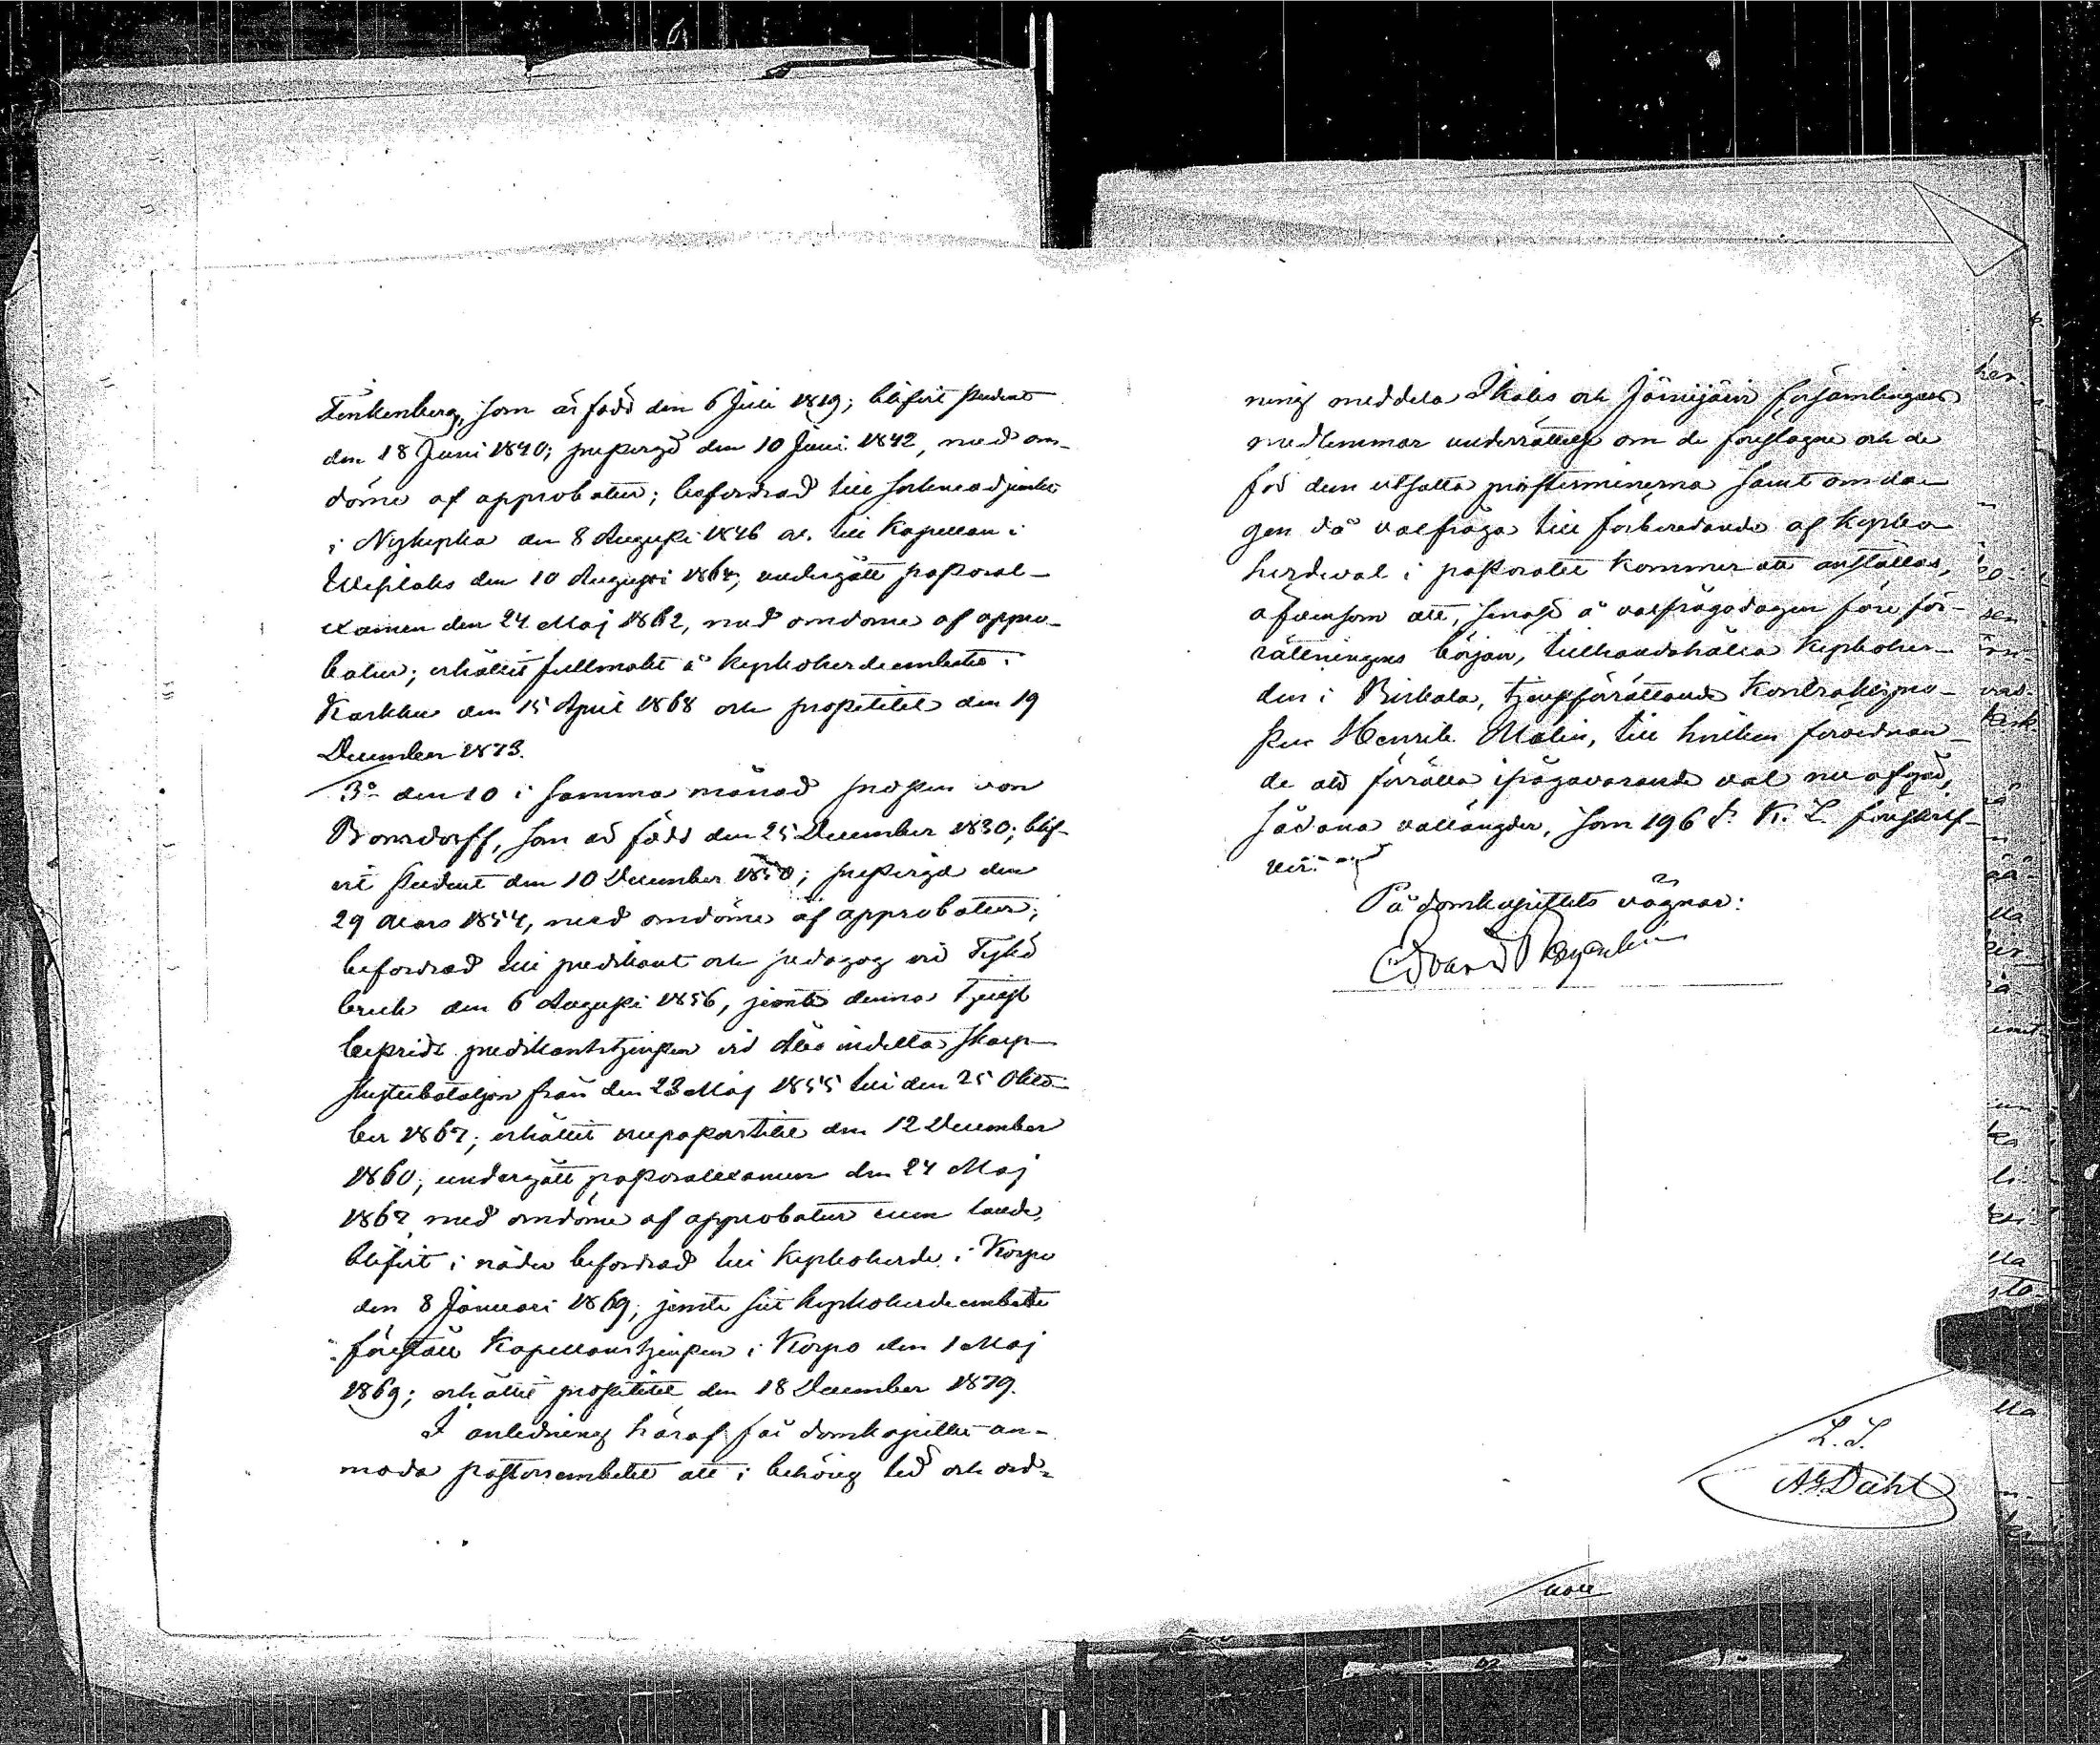 Tenkenberg, som är född den 6 Juli 1819; blifvit student
den 18 Juni 1840; prestvigd den 10 Juni 1842, med om-
döme af approbatur; befordrad till sockneadjunkt
i Nykyrka den 8 Augusti 1846 o. till Kapellan i
den 10 Augusti 1864; undergått pastoral-
examen den 24 Maj 1862, med omdöme af appro-
batur; erhållit fullmakt å kyrkoherdeembetet i
Karkku den 15 April 1868 och prosttitel den 19
December 1873.
3:o den 10 i samma månad prosten von
Bonsdorff, som är född den 25 December 1830; blif-
vit student den 10 December 1850; prestvigd den
29 Mars 1854, med omdöme af approbatur;
befordrad till predikant och pedagog vid Tykö
bruk den 6 Augusti 1856, jemte denna tjenst
bestridt predikantstjensten vid Åbo indelta skarp-
skyttebataljon från den 23 Maj 1855 till den 25 Okto-
ber 1867; erhållit vicepastorstitel den 12 December
1860; undergått pastoralexamen den 24 Maj
1867 med omdöme af approbatur cum laude,
blifvit i nåder befordrad till kyrkoherde i Korpo
den 8 Januari 1869; jemte sitt kyrkoherdeembete
förestått Kapellanstjensten i Korpo den 1 Maj
1869; erhållit prosttitel den 18 December 1879.
I anledning häraf får domkapitlet an-
moda pastorsembetet att i behörig tid och ord-
ning meddela Ikalis och Jämijärvi församlingars
medlemmar underrättelse om de föreslagne och de
för dem utsatta profterminerna samt om da-
gen då valfråga till förberedande af kyrko-
herdeval i pastoratet kommer att anställas,
äfvensom att, senast å valfrågodagen före för-
rättningens början, tillhandahålla kyrkoher-
den i Birkala, tjenstförrättande Kontraktspro-
sten Henrik Malin, till hvilken förordnan-
de att förrätta ifrågavarande val nu afgår,
sådana vallängder, som 196 § K. L. föreskrif-
ver.
På domkapitlets vägnar:
Edvard
L. S.
A. G. Dahl